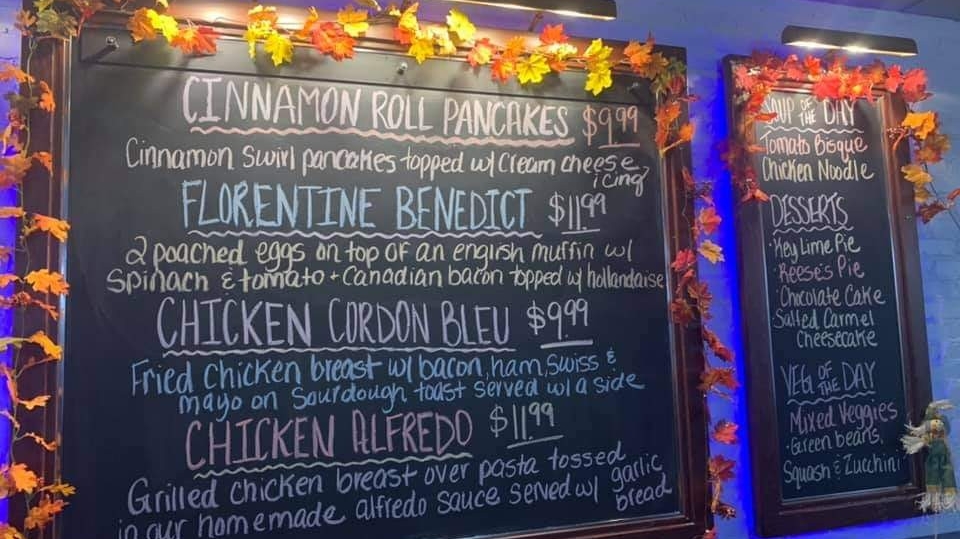 CINNAMON ROLL PANCAKES $9.99
Cinnamon swirl pancakes topped w/ cream cheese
icing
FLORENTINE BENEDICT $11.99
2 poached eggs on top of an english muffin w/
spinach & tomato + Canadian bacon topped w/ hollandaise
CHICKEN CORDON BLEU $9.99
Fried chicken breast w/ bacon, ham, swiss &
mayo on Sourdough toast served w/ a side
CHICKEN ALFREDO $11.99
Grilled chicken breast over pasta tossed
in our homemade alfredo sauce served w/ garlic
bread
SOUP OF THE DAY
Tomato Bisque
Chicken Noodle
DESSERTS
·Key Lime Pie
·Reese's Pie
·Chocolate Cake
Salted Carmel
Cheesecake
VEG OF THE DAY
Mixed Veggies
·Green beans,
Squash & Zucchini